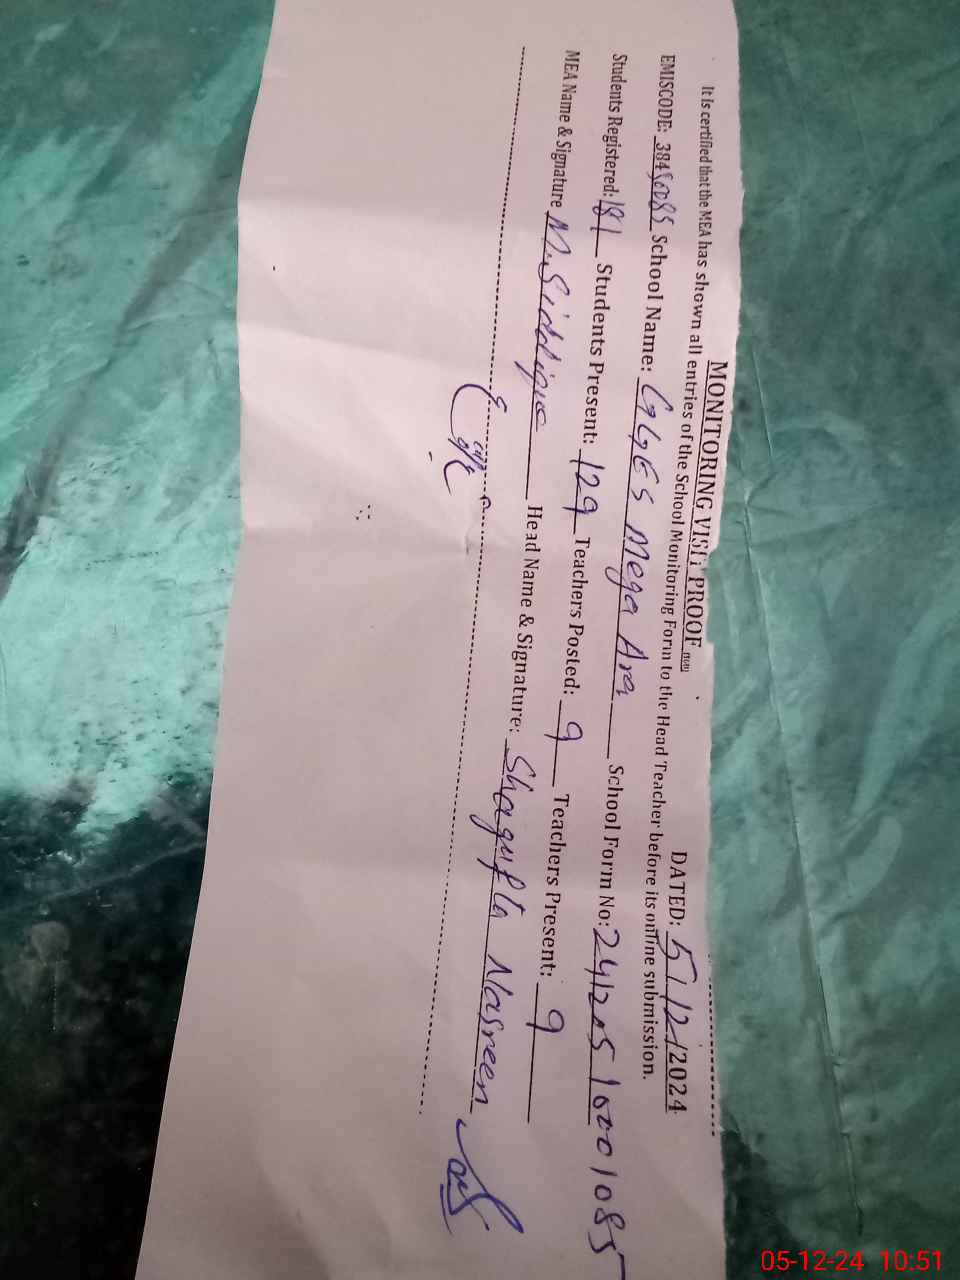 MONITORING VISIT PROOF
DATED: 5/12/2024
It is certified that the MEA has shown all entries of the School Monitoring Form to the Head Teacher before its online submission.
EMISCODE: 38450085 School Name: GGES Mega Ara School Form No: 241205
Students Registered: 181 Students Present: 129 Teachers Posted: 9 Teachers Present: 9
MEA Name & Signature M. Siddique Head Name & Signature: Shagufta Nasreen
05-12-24 10:51